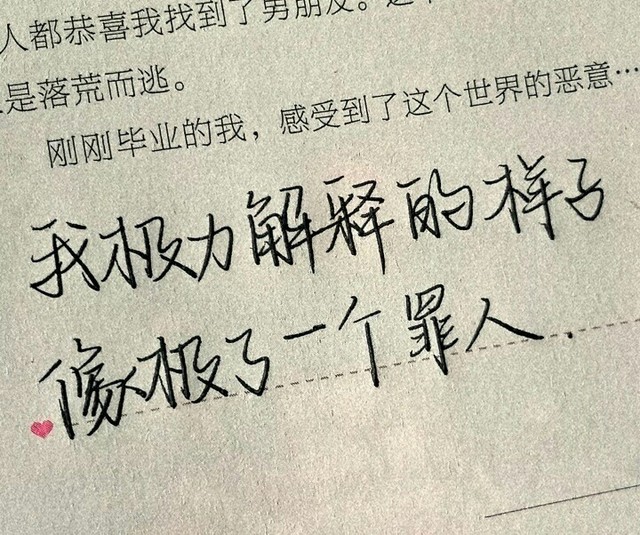 人都恭喜我找到了男朋友。这个
是落荒而逃。
刚刚毕业的我，感受到了这个世界的恶意…
我极力解释的样子
像极了一个罪人.